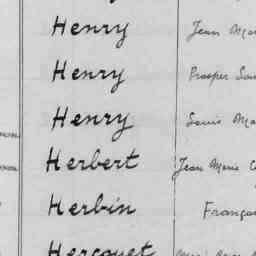 Henry Jean Ma
Henry Prosper Lou
Henry Louis Ma
Herbert Jean Marie
Herbin Françoi
Hercouet